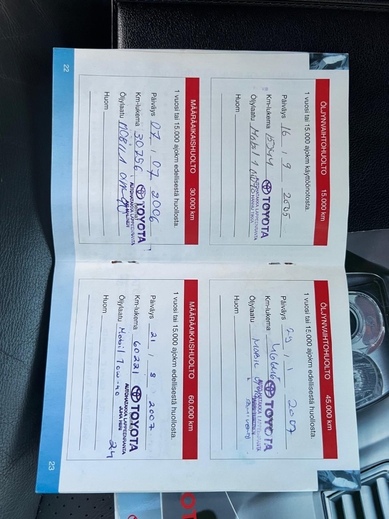 ÖLJYNVAIHTOHUOLTO 15.000 km
1 vuosi tai 15.000 ajokm käyttöönotosta.
Päiväys 16 . 9 2005
Km-lukema
TOYOTA
Öljylaatu Mobil 1
Huom
MÄÄRÄAIKAISHUOLTO 30.000 km
1 vuosi tai 15.000 ajokm edellisestä huollosta.
Päiväys 07. 07 2006
Km-lukema 30756
TOYOTA
Öljylaatu
Huom
22
ÖLJYNVAIHTOHUOLTO 45.000 km
1 vuosi tai 15.000 ajokm edellisestä huollosta.
Päiväys 2007
Km-lukema
TOYOTA
Öljylaatu Mobil
Huom
MÄÄRÄAIKAISHUOLTO 60.000 km
1 vuosi tai 15.000 ajokm edellisestä huollosta.
Päiväys 21. 8 2007
Km-lukema 60221
TOYOTA
Öljylaatu Mobil 1 0w-40
Huom
23
TOYOTA